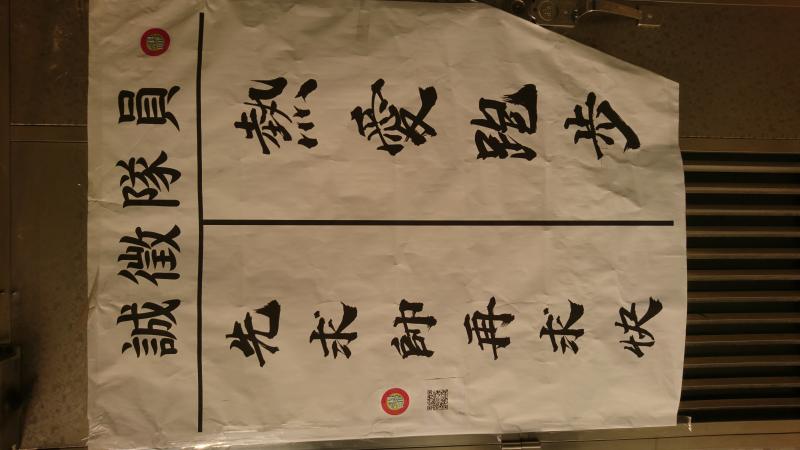 誠徵隊員
熱愛跑步
先求帥再求快